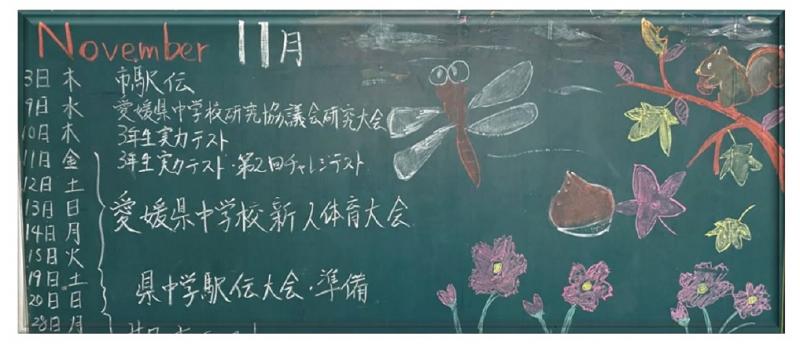 November 11月
3日 木 市駅伝
9日 水 愛媛県中学校研究協議会研究大会
10日 木 3年生実力テスト
11日 金 3年生実力テスト・第2回チャレンジテスト
12日 土
13日 日 愛媛県中学校新人体育大会
14日 月
15日 火
19日 土 県中学駅伝大会・準備
20日 日
28日 月